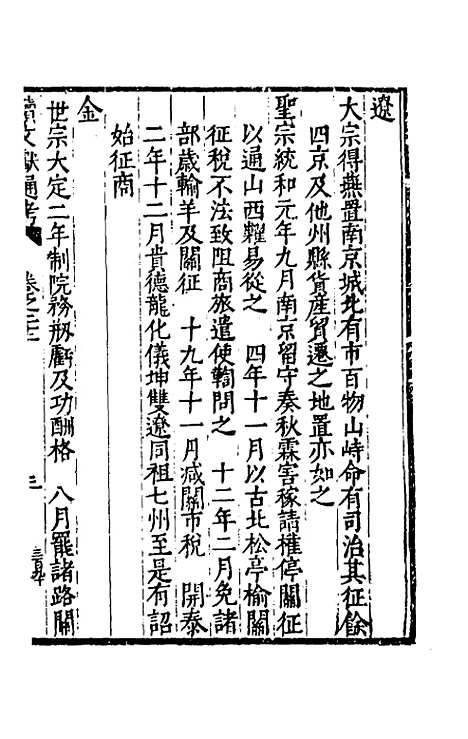 遼
太宗得燕置南京城北有市百物山峙命有司治其征餘
四京及他州縣貨產貿遷之地置亦如之
聖宗統和元年九月南京留守奏秋霖害稼請權停關征
以通山西糴易從之　四年十一月以古北松亭榆關
征稅不法致阻商旅遣使鞫問之　十二年二月免諸
部歲輸羊及關征　十九年十一月减關市稅　開泰
二年十二月貴德龍化儀坤雙遼同祖七州至是有詔
始征商
金
世宗大定二年制院務剏虧及功酬格　八月罷諸路關
續文獻通考　卷之二十二　三